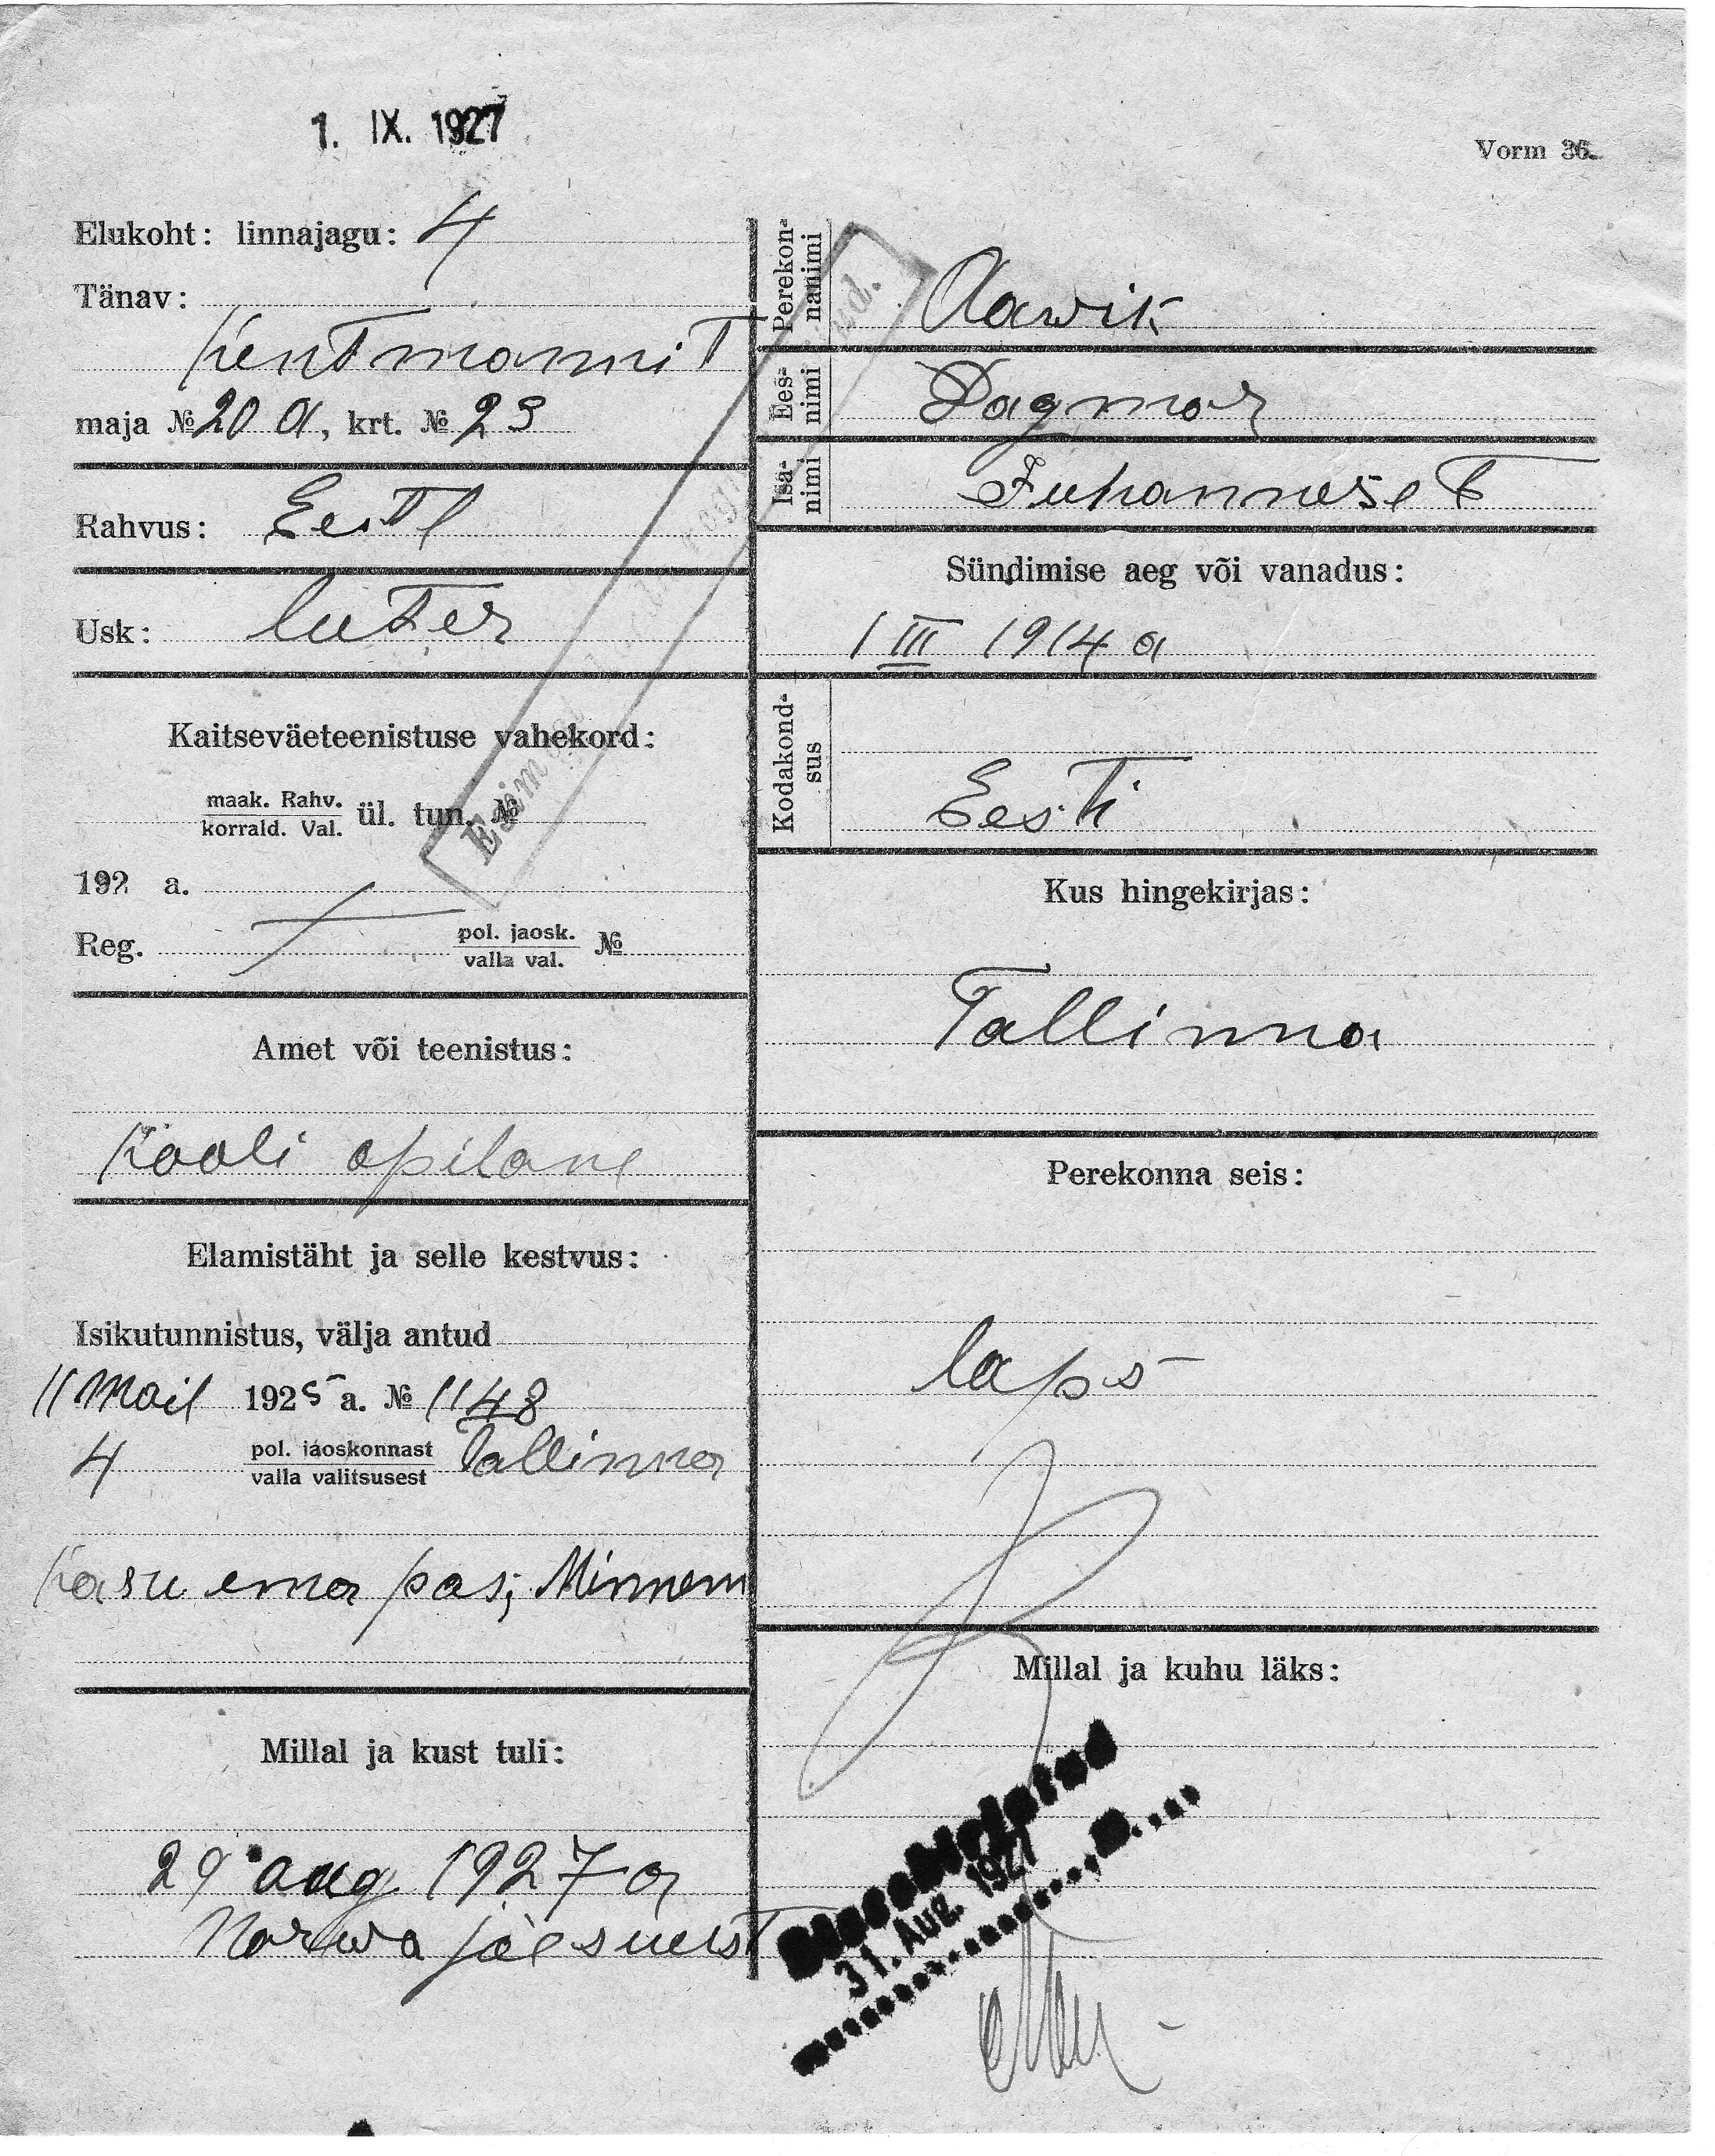 1. IX. 1927
Vorm 36.
Elukoht: linnajagu: 4
Tänav:
KentmanniT
maja № 20 a, krt. № 23
Rahvus: Eestl
Usk: luter
Kaitseväeteenistuse vahekord:
maak. Rahv.
korrald. Val. ül. tun. №
192 a.
Reg. pol. jaosk.
valla val. №
Amet või teenistus:
Kooli opilane
Elamistäht ja selle kestvus:
Isikutunnistus, välja antud
11 Mail 1925 a. № 1148
4 pol. jaoskonnast
valla valitsusest Tallinna
Kasu ema pas;
Millal ja kust tuli:
29 aug 1927 a
Narwa jõesuust
Perekon-
nanimi Aawik
Ees-
nimi Dagmar
Isa-
nimi Juhannese T
Sündimise aeg või vanadus:
1 III 1914 a
Kodakond-
sus Eesti
Kus hingekirjas:
Tallinna
Perekonna seis:
laps
Millal ja kuhu läks:
Sissekirjutatud
31. Aug. 1927